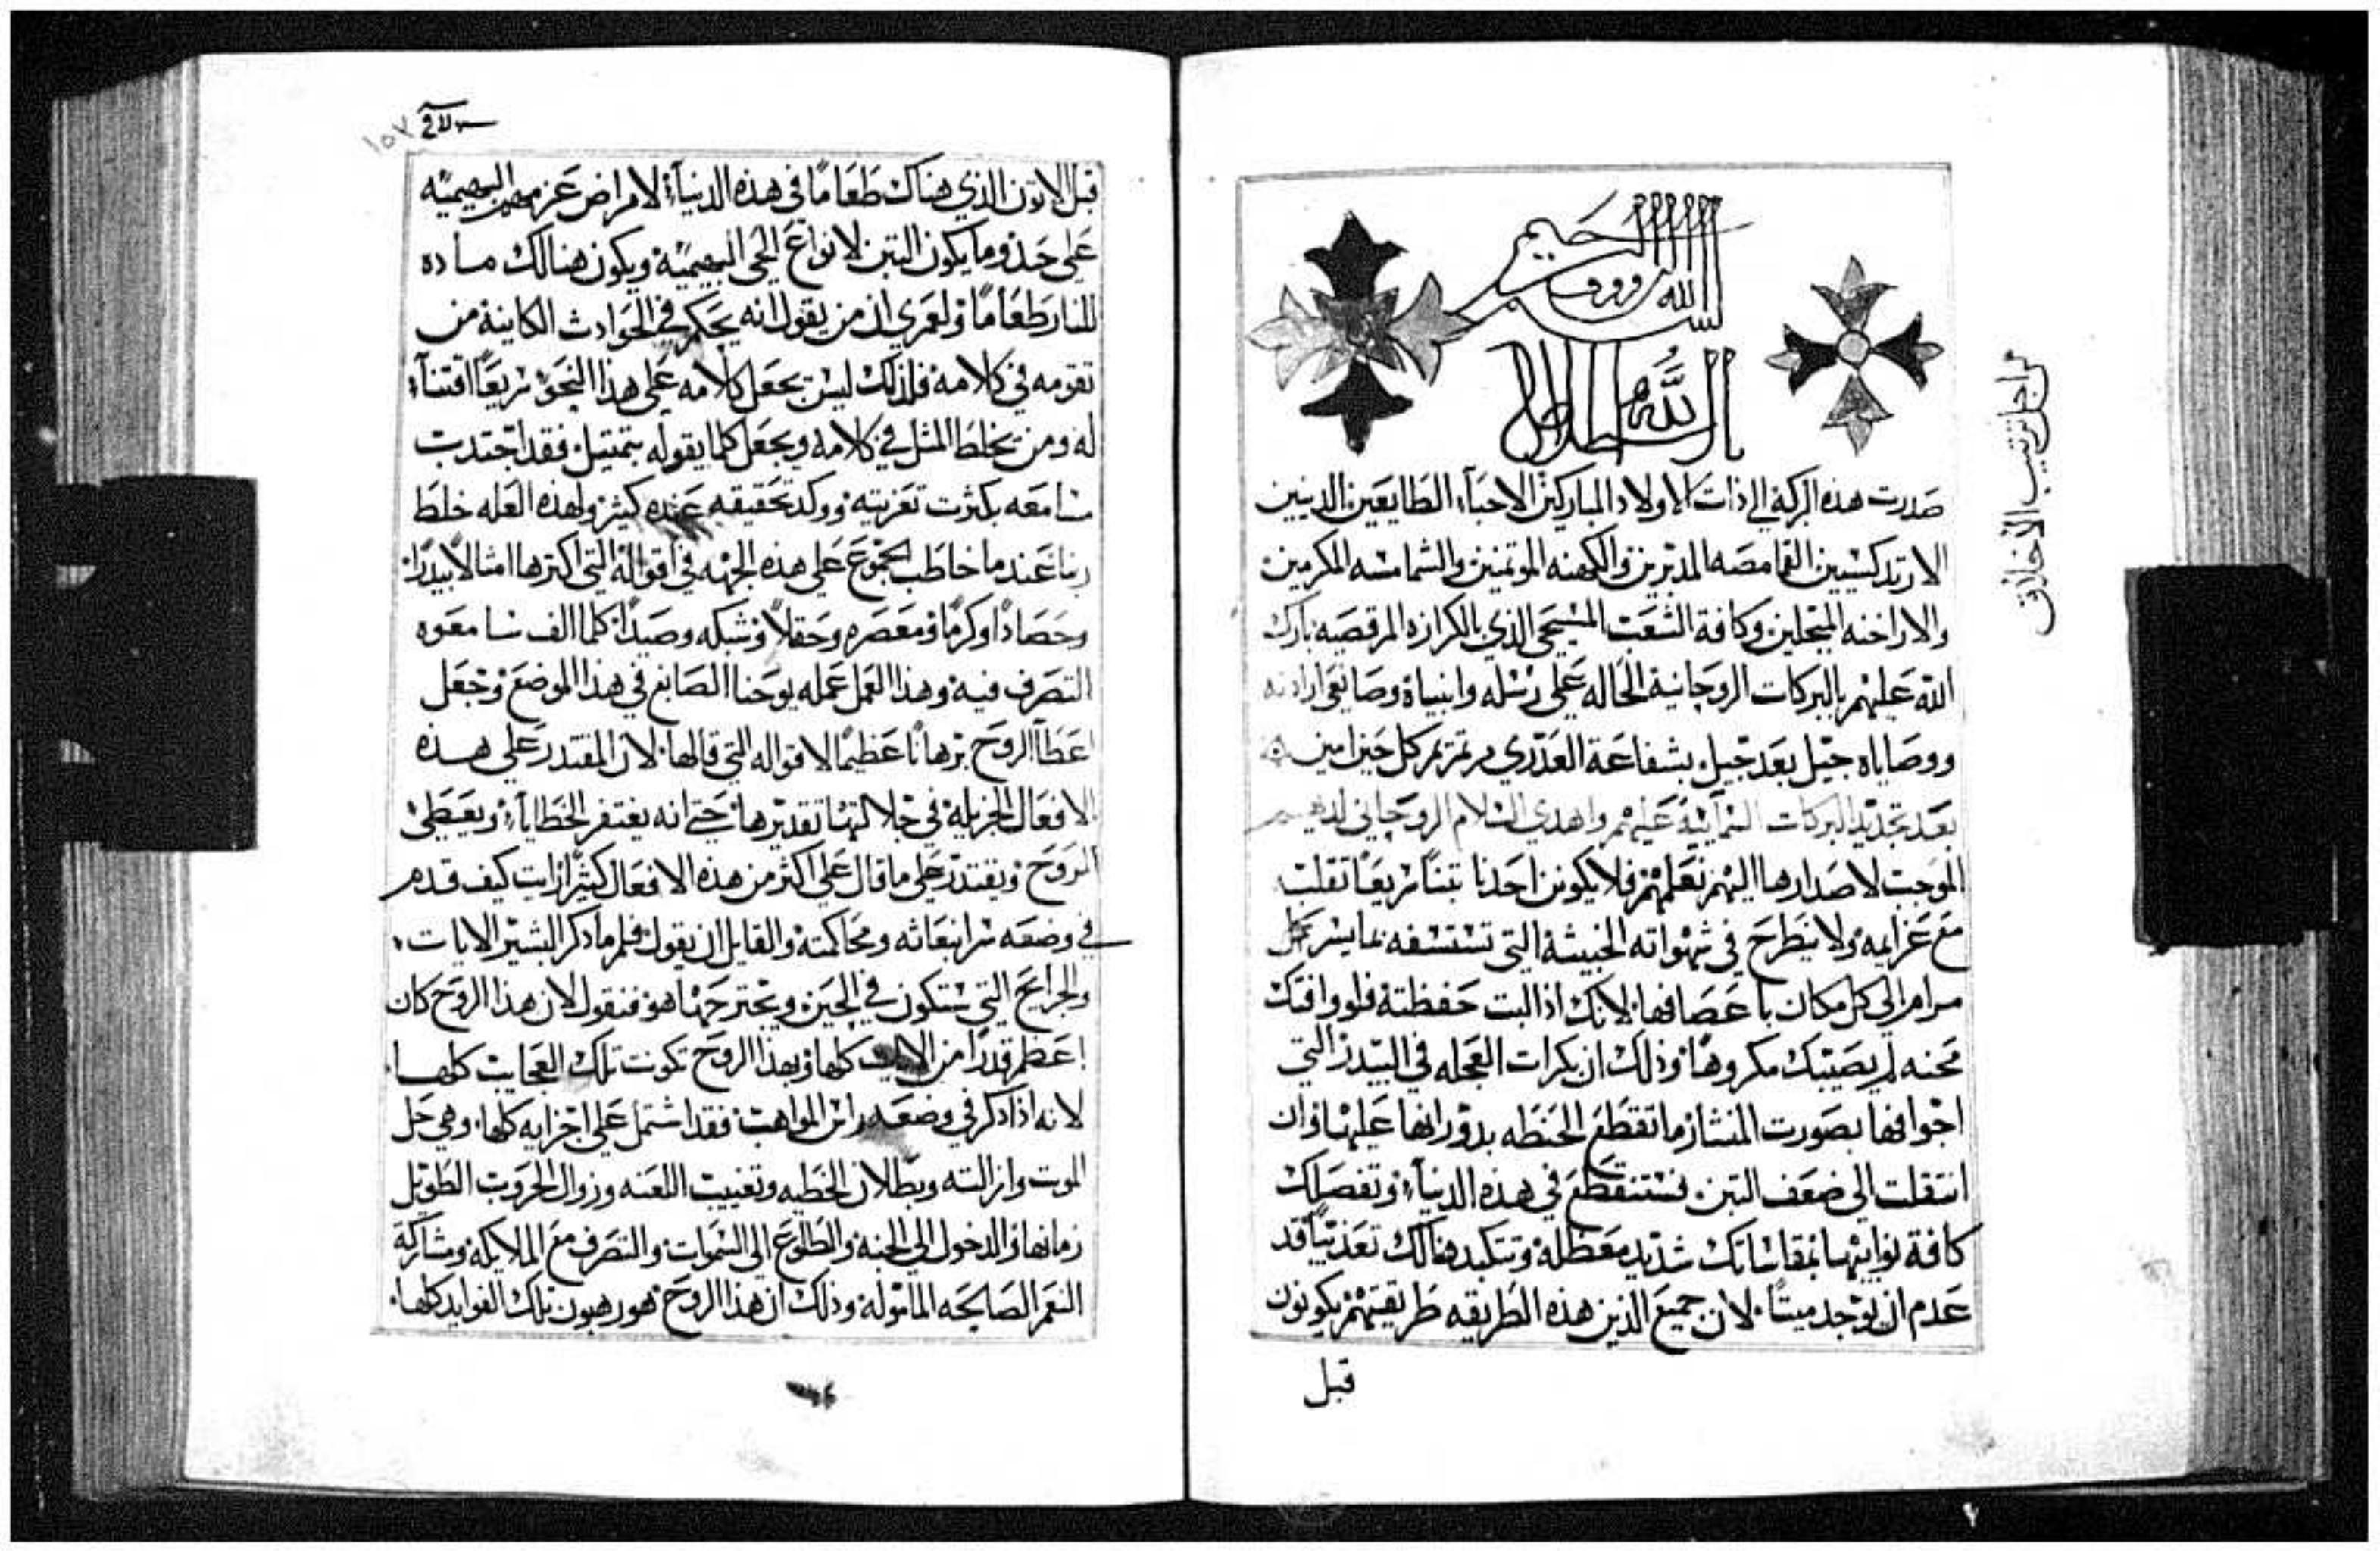 بسم الله الرووف الرحيم
الله
من اجل ترتيب الاخلاق
صدرت هذه البركة الى ذات الاولاد المباركين الاحباء الطايعين الدينين
الارتدكسيين القمامصه المدبرين والكهنه الموتمنين والشمامسه المكرمين
والاراخنه المبجلين وكافة الشعب المسيحي الذي بالكرازه المرقصيه بارك
الله عليهم بالبركات الروحانية الحاله على رسله وانبياة وصانعى ارادته
ووصاياه جيل بعد جيل بشفاعة العدرى مرتمريم كل حين امين
بعد تجديد البركات السمائية عليهم واهدي السلام الروحاني لديهم
الموجب لاصدارها اليهم نعلمهم فلا يكونن احدنا تبنا سريعا تقلب
مع عزايمه ولا ينطرح في شهواته الخبيثة التي تستسفه بما يسر كل
مرام الى كل مكان باعصافها لانك اذا لبت حفظته فلو وافتك
محنه لم يصيبك مكروها وذلك ان بكرات العجله في البيدر التي
اجوافها بصورت المنشار ما تقطع الحنطه بدورانها عليها وان
انتقلت الى ضعف التبن فستنقطع في هذه الدنياء وتفصلك
كافة نوايبها بمقاساتك شديد معظلة وتتكبد هنالك تعذيبا قد
عدم ان يوجد ميتا لان جميع الذين هذه الطريقه طريقتهم يكونون
قبل
١٥٧
قبل الاتون الذي هناك طعاما في هذه الدنياء لامراض عزمهم البهيميه
على حذو ما يكون التبن لانواع الحي البهيمية ويكون هنالك ماده
للنار طعاما ولعمري ان من يقول انه يحكم في الحوادث الكاينة من
تقومه في كلامة فلذلك ليس يجعل كلامه على هذا النحو سريعا اقتناء
له ومن يخلط المثل في كلامه ويجعل كلما يقوله بتمتيل فقد اجتدب
سامعه بكثرت تعزيته ووكد تحقيقه عنده كثير ولهذه العله خلط
ربنا عند ما خاطب الجموع على هذه الجهه في اقواله التي اكترها امثالا بيدرا
وحصادا وكرما ومعصره وحقلا وشبكه وصيدا كلما الف سامعوه
التصرف فية وهذا العمل عمله يوحنا الصابغ في هذا الموضع وجعل
اعطا الروح برهانا عظيما لاقواله التي قالها لان المقتدر على هذه
الافعال الجزيلة في جلالتها تقديرها حتى انه يغتفر الخطاياء ويعطي
الروح ويقتدر على ما قال على اكثر من هذه الافعال كثيرا ارايت كيف قدم
في وضعه سر انبعاثه ومحاكمته والقايل ان يقول فلم ما دكر البشير الايات
والجرايح التي ستكون في الحين ويجترحها هو فنقول لان هذا الروح كان
اعظم قدرا من الايات كلها وبهذا الروح تكونت تلك العجايب كلها
لانه اذا دكر في وضعه راس المواهب فقد اشتمل على اجزايه كلها وهي حل
الموت وازالته وبطلان الخطيه وتغييب اللعنه وزوال الحروب الطويل
زمانها والدخول الى الجنة والطلوع الى السموات والتصرف مع الملايكه ومشاركة
النعم الصالحه المامولة وذلك ان هذا الروح هو رهبون تلك الفوايد كلها